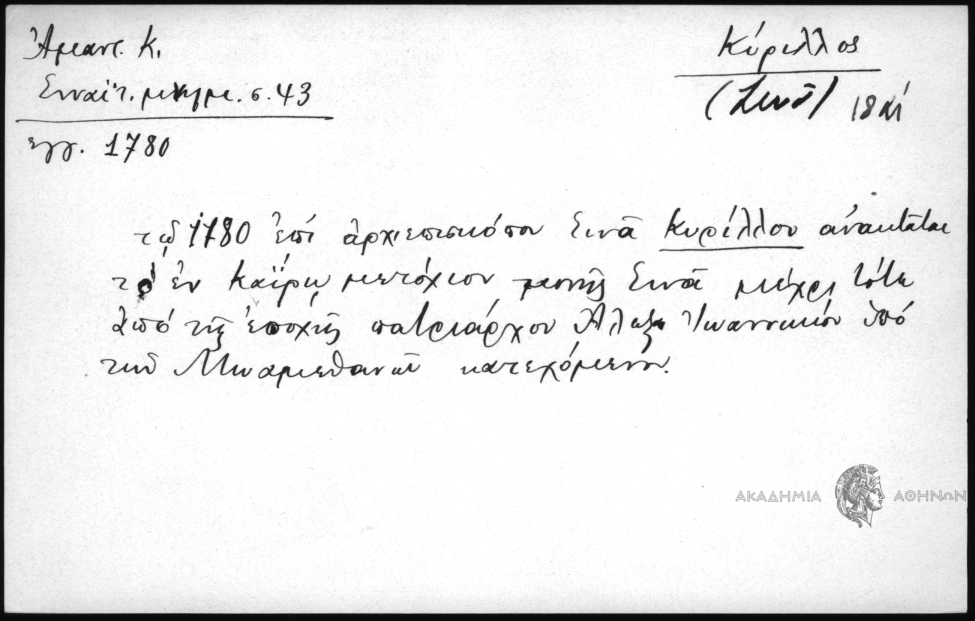 Ἀμαντ. Κ.
Σιναϊτ. μνημ. σ. 43
ἔγγ. 1780
Κύριλλος
(Σινᾶ) 18
τῷ 1780 ἐπὶ ἀρχιεπισκόπου Σινᾶ Κυρίλλου ἀνακτᾶται
τὸ ἐν Καΐρῳ μετόχιον μονῆς Σινᾶ μέχρι τότε
ἀπὸ τῆς ἐποχῆς πατριάρχου Ἀλεξ. Ἰωαννικίου ὑπὸ
τῶν Μωαμεθανῶν κατεχόμενον.
ΑΚΑΔΗΜΙΑ ΑΘΗΝΩΝ